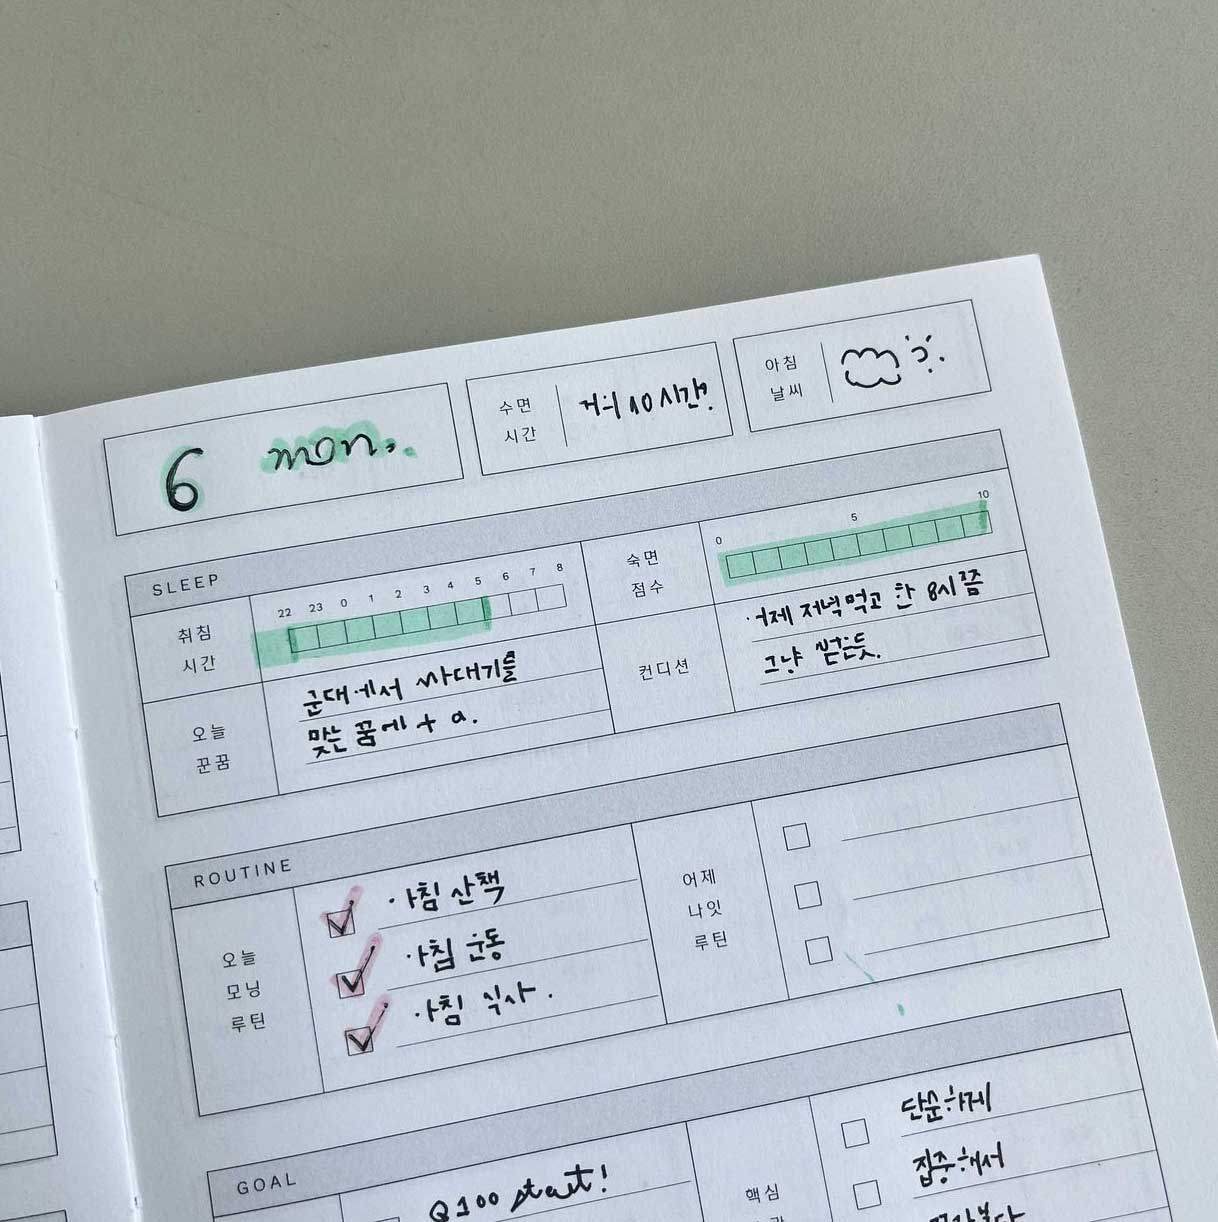 6 mon.
수면
시간
거의 10시간?
아침
날씨
SLEEP
취침
시간
22 23 0 1 2 3 4 5 6 7 8
숙면
점수
0 5 10
오늘
꾼꿈
군대에서 싸대기를
맞는 꿈에 + a.
컨디션
어제 저녁먹고 한 8시쯤
그냥 뻗은듯.
ROUTINE
오늘
모닝
루틴
아침 산책
아침 운동
아침 식사.
어제
나잇
루틴
GOAL
Q100 start!
핵심
단순하게
집중해서